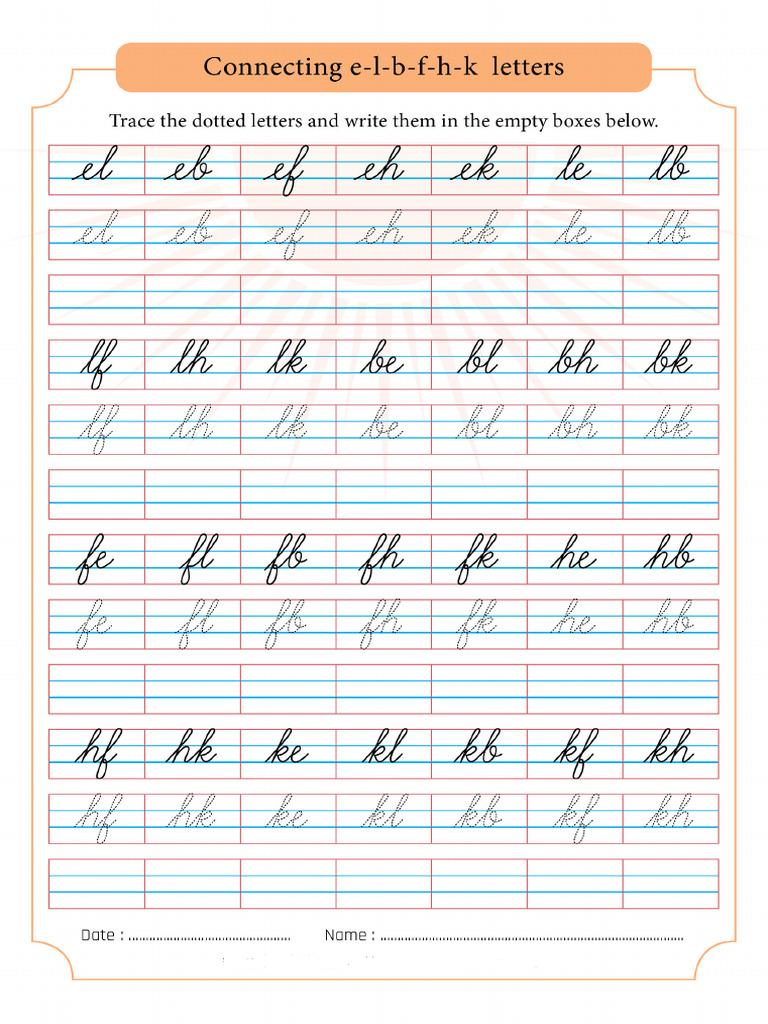 Connecting e-l-b-f-h-k letters
Trace the dotted letters and write them in the empty boxes below.
el eb ef eh ek le lb
el eb ef eh ek le lb
lf lh lk be bl bh bk
lf lh lk be bl bh bk
fe fl fb fh fk he hb
fe fl fb fh fk he hb
hf hk ke kl kb kf kh
hf hk ke kl kb kf kh
Date : ........................................ Name : ........................................................................